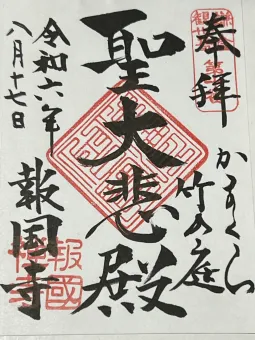 奉拝
かまくら
竹の庭
聖大悲殿
令和六年
八月十七日
報国寺
報國